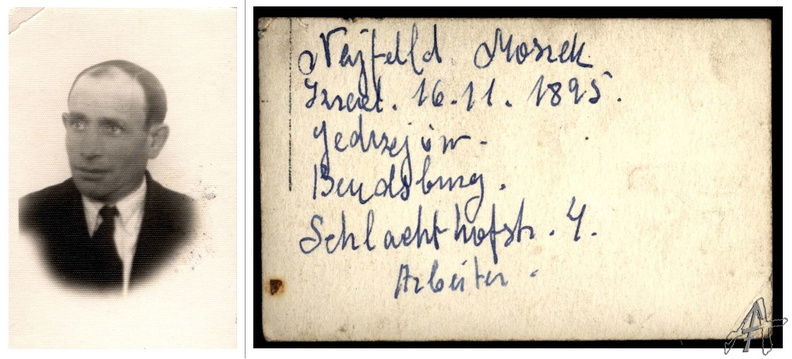 Nejfeld Moszek
Izrael. 16.11.1895.
Jedrzejów.
Bendsburg.
Schlachthofstr. 4.
Arbeiter.